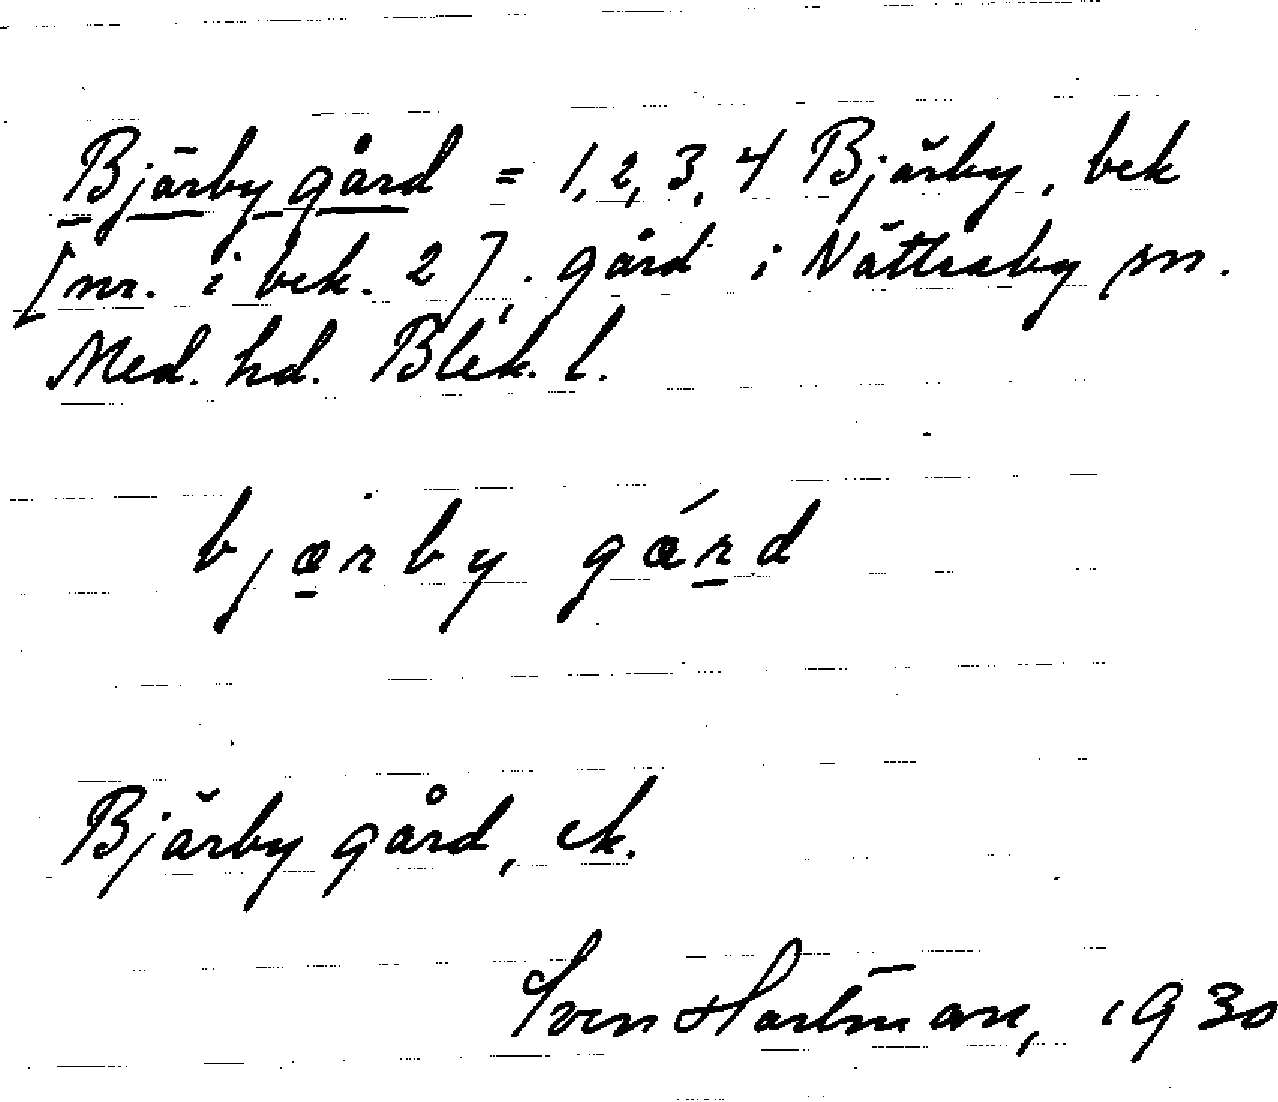 Bjärby gård = 1, 2, 3, 4 Bjärby, bek
[nr. i bek. 2], gård i Nättraby sn.
Med. hd. Blek. l.
bjærby gárd
Bjärby gård, ek.
Sven Hartman, 1930